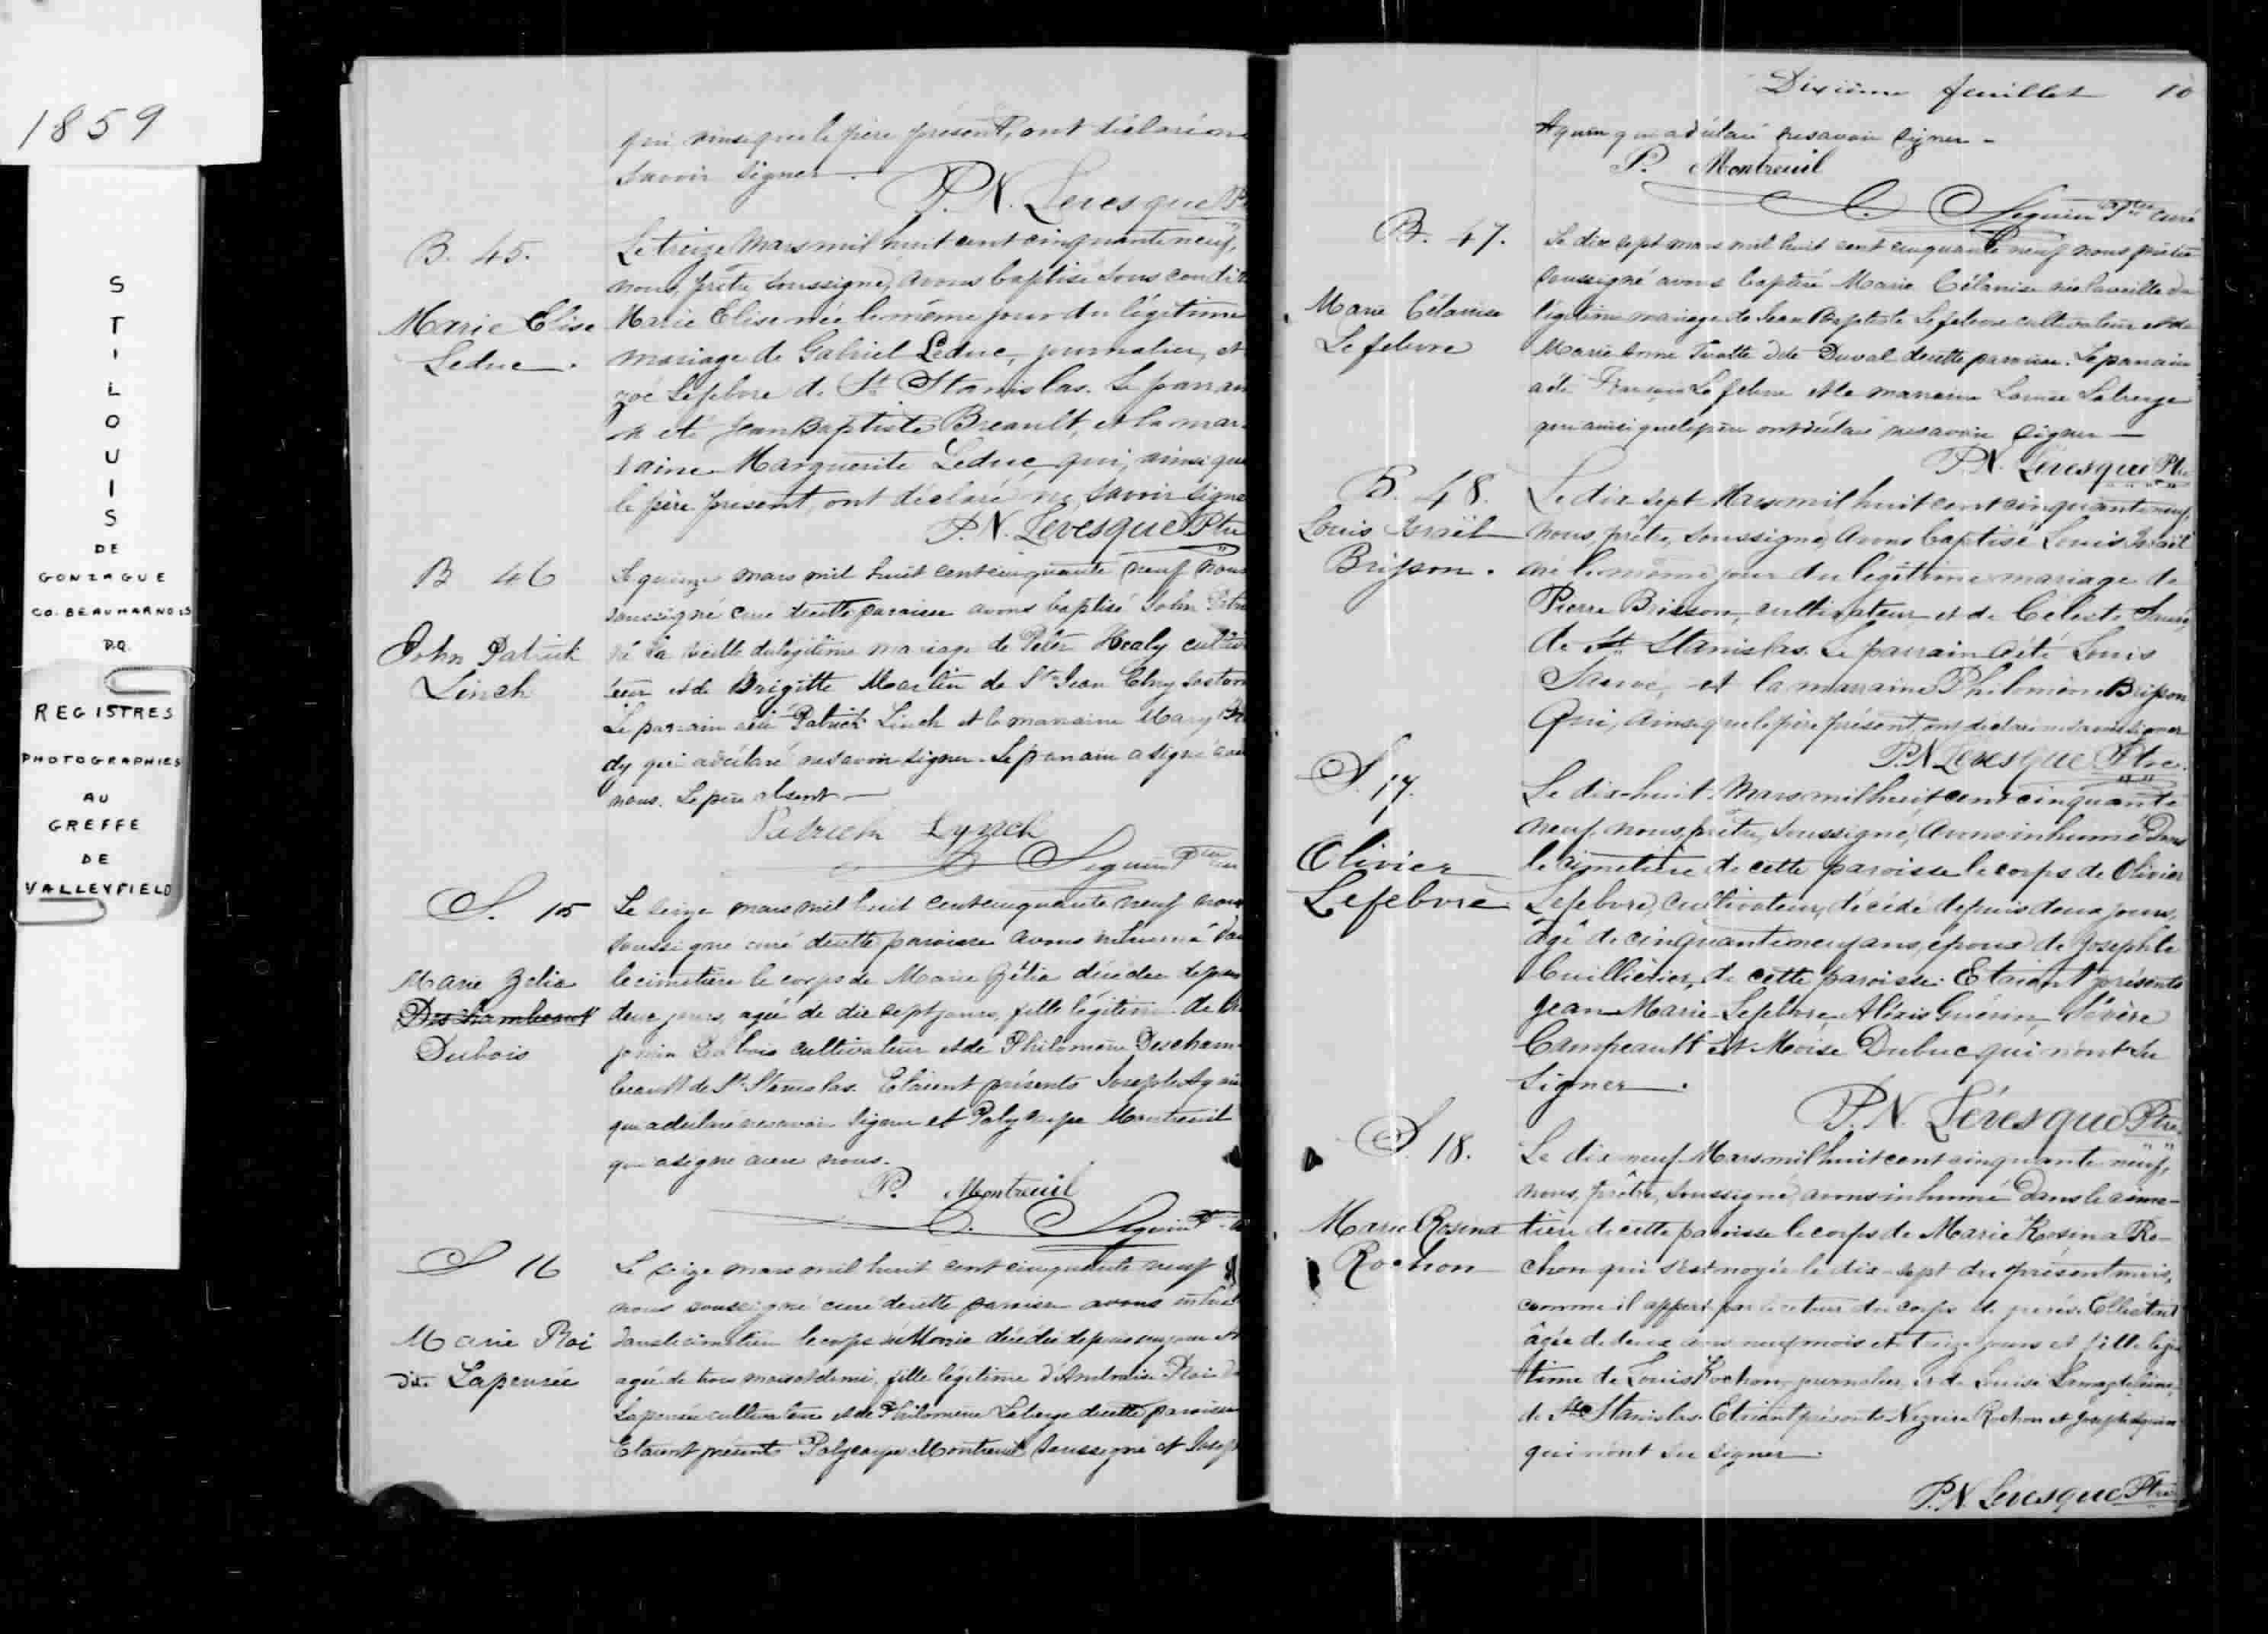 1859
S
T
L
O
U
I
S
DE
GONZAGUE
CO. BEAUHARNOIS
P.Q.
REGISTRES
PHOTOGRAPHIES
AU
GREFFE
DE
VALLEYFIELD
qui ainsi que le père présent, ont déclaré ne
savoir signer.
P.N. Levesque P
B. 45.
Marie Elise
Leduc.
Le treize Mars mil huit cent cinquante neuf,
nous, prêtre soussigné, avons baptisé sous condit
Marie Elise née le même jour du légitime
mariage de Gabriel Leduc, journalier, et
zoé Lefebvre de St Stanislas. Le parrain
a été Jean Baptiste Breault, et la mar-
raine Marguerite Leduc, qui, ainsi que
le père présent, ont déclaré ne savoir signe
P.N. Levesque Ptre
B 46
John Patrick
Linch
Le quinze mars mil huit cent cinquante neuf nous
soussigné curé de cette paroisse avons baptisé John
né la veille du légitime mariage de Peter Healy cultiva
teur et de Brigitte Martin de St Jean
Le parrain a été Patrick Linch et la marraine Mary
dy qui a déclaré ne savoir signer. Le parrain a signé avec
nous. Le père absent
Patrick Lynch
Seguin Ptre
S. 15
Marie Zelia
Deschambeault
Dubois
Le seize mars mil huit cent cinquante neuf nous
soussigné curé de cette paroisse avons inhumé dans
le cimetière le corps de Marie Zélia décédée depuis
deux jours, agée de dix sept jours, fille légitime de
Dubois cultivateur et de Philomène Descham-
beault de St Stanislas. Etaient présents Joseph Aquin
qui a déclaré ne savoir signer et Polycarpe Montreuil
qui a signé avec nous.
P. Montreuil
Seguin Ptre
S 16
Marie Roi
dit Lapensée
Le seize mars mil huit cent cinquante neuf
nous soussigné curé de cette paroisse avons inhumé
dans le cimetière le corps de Marie décédée depuis un jour et
agée de trois mois et demi, fille légitime d'Ambroise Roi
Lapensée cultivateur et de Philomène Laberge de cette paroisse
Etaient présents Polycarpe Montreuil soussigné et Joseph
Dixième feuillet 10
Aquin qui a déclaré ne savoir signer -
P. Montreuil
Seguin Ptre curé
B. 47.
Marie Célanise
Lefebvre
Le dix sept mars mil huit cent cinquante neuf nous prêtre
soussigné avons baptisé Marie Célanise née la veille du
légitime mariage de Jean Baptiste Lefebvre cultivateur et de
Marie Anne Duval de cette paroisse. Le parrain
a été François Lefebvre et la marraine Louise Laberge
qui ainsi que le père ont déclaré ne savoir signer —
P.N. Levesque Ptre
B. 48.
Louis Israël
Brisson.
Le dix sept Mars mil huit cent cinquante neuf,
nous, prêtre, soussigné, avons baptisé Louis Israël
né le même jour du légitime mariage de
Pierre Brisson, cultivateur et de Céleste Sauvé,
de St Stanislas. Le parrain a été Louis
Sauvé, et la marraine Philomène Brisson
Qui, ainsi que le père présent, ont déclaré ne savoir signer
P.N. Levesque Ptre.
S. 17.
Olivier
Lefebvre
Le dix-huit Mars mil huit cent cinquante
neuf, nous, prêtre, soussigné, avons inhumé dans
le cimetière de cette paroisse le corps de Olivier
Lefebvre, cultivateur, décédé depuis deux jours,
âgé de cinquante neuf ans, époux de Josephte
Cuillièrier, de cette paroisse. Etaient présents
Jean-Marie Lefebvre, Aléxis Guérin, Sévère
Campeault et Moïse Dubuc qui n'ont su
signer.
P.N. Lévesque Ptre
S. 18.
Marie Rosina
Rochon
Le dix neuf Mars mil huit cent cinquante neuf,
nous, prêtre, soussigné, avons inhumé dans le cime-
tière de cette paroisse le corps de Marie Rosina Ro-
chon qui s'est noyée le dix-sept du présent mois,
comme il appert par le Elle était
âgée de deux ans neuf mois et treize jours et fille légi
time de Louis Rochon, journalier, et de Louise
de St Stanislas. Etaient présents Rochon et Joseph Aquin
qui n'ont su signer.
P.N. Levesque Ptre